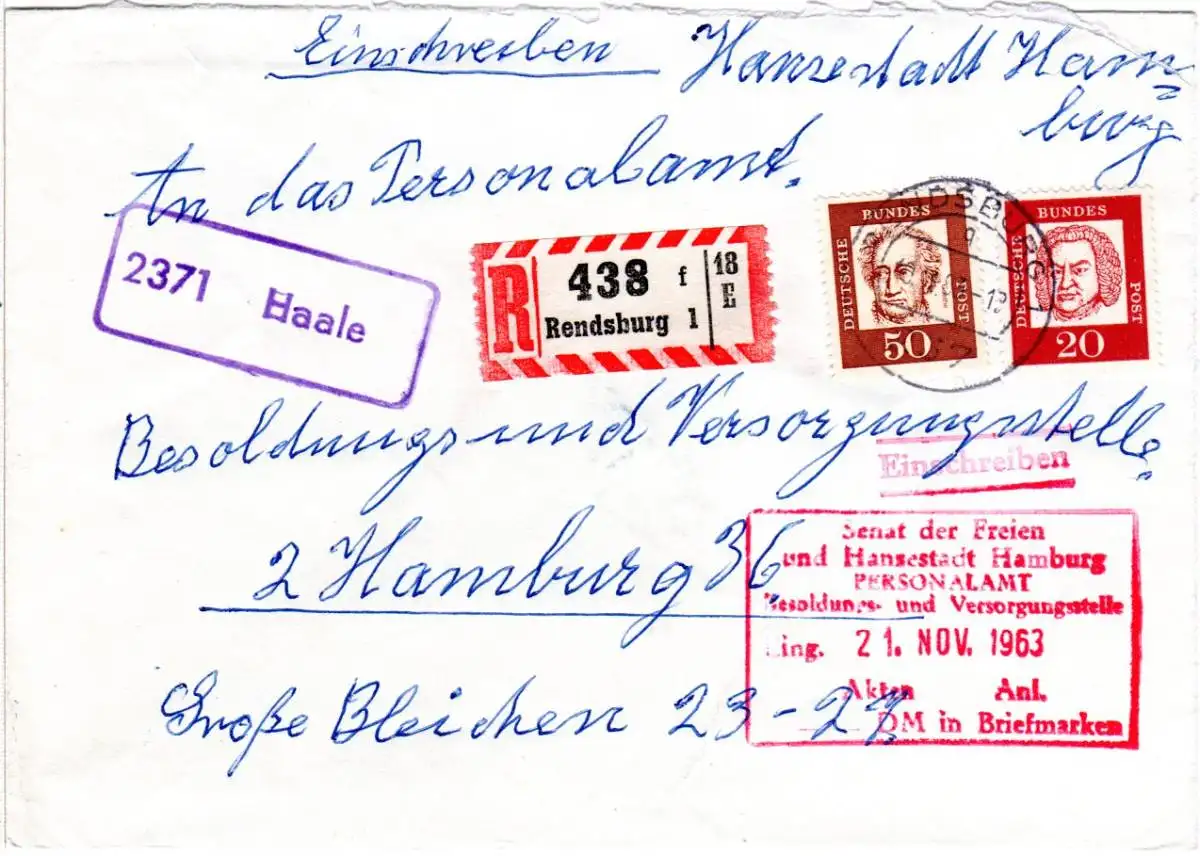 Einschreiben Hansestadt Ham=
burg
An das Personalamt.
2371 Haale
R 438 f 18 E
Rendsburg 1
DEUTSCHE BUNDES POST 50
DEUTSCHE BUNDES POST 20
RENDSBURG
Besoldungs und Versorgungsstelle
Einschreiben
2 Hamburg 36
Senat der Freien
und Hansestadt Hamburg
PERSONALAMT
Besoldungs- und Versorgungsstelle
Eing. 21. NOV. 1963
Akten Anl.
DM in Briefmarken
Große Bleichen 23-27